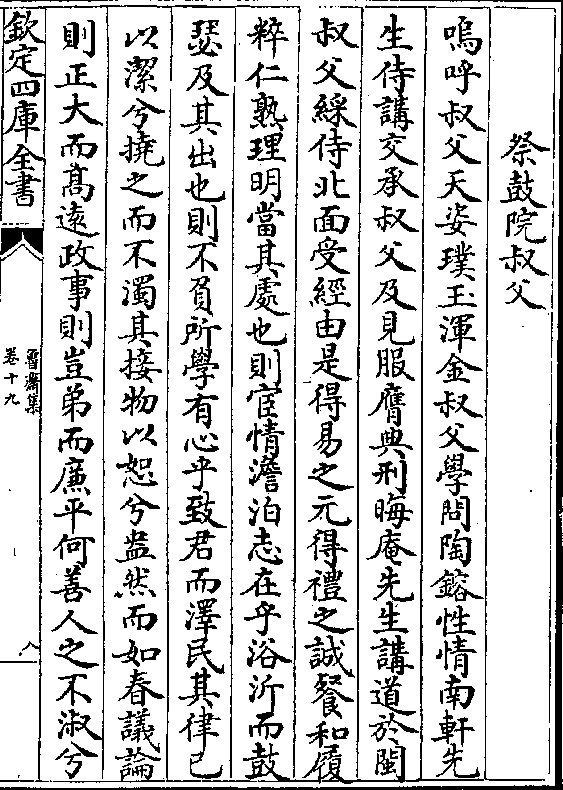 祭鼓院叔父
嗚呼叔父天姿璞玉渾金叔父學問陶鎔性情南軒先
生侍講交承叔父及見服膺典刑晦庵先生講道於閩
叔父綵侍北面受經由是得易之元得禮之誠餐和履
粹仁熟理明當其處也則宦情澹泊志在乎浴沂而鼓
瑟及其出也則不負所學有心乎致君而澤民其律己
以潔兮撓之而不濁其接物以恕兮盎然而如春議論
則正大而髙遠政事則豈弟而廉平何善人之不淑兮
欽定四庫全書
魯齋集
卷十九
八